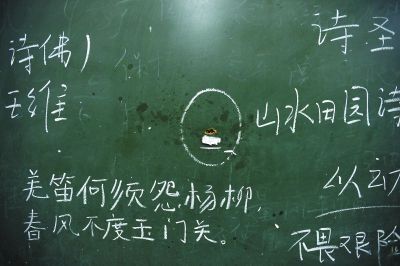 诗佛)
王维
诗圣
山水田园诗
羌笛何须怨杨柳,
春风不度玉门关。
以动
不畏艰险